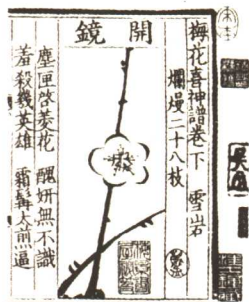 梅花喜神譜卷下 雪岩
爛熳二十八枝
開鏡
塵匣啓菱花 醜妍無不識
羞殺幾英雄 霜鬢太前逼